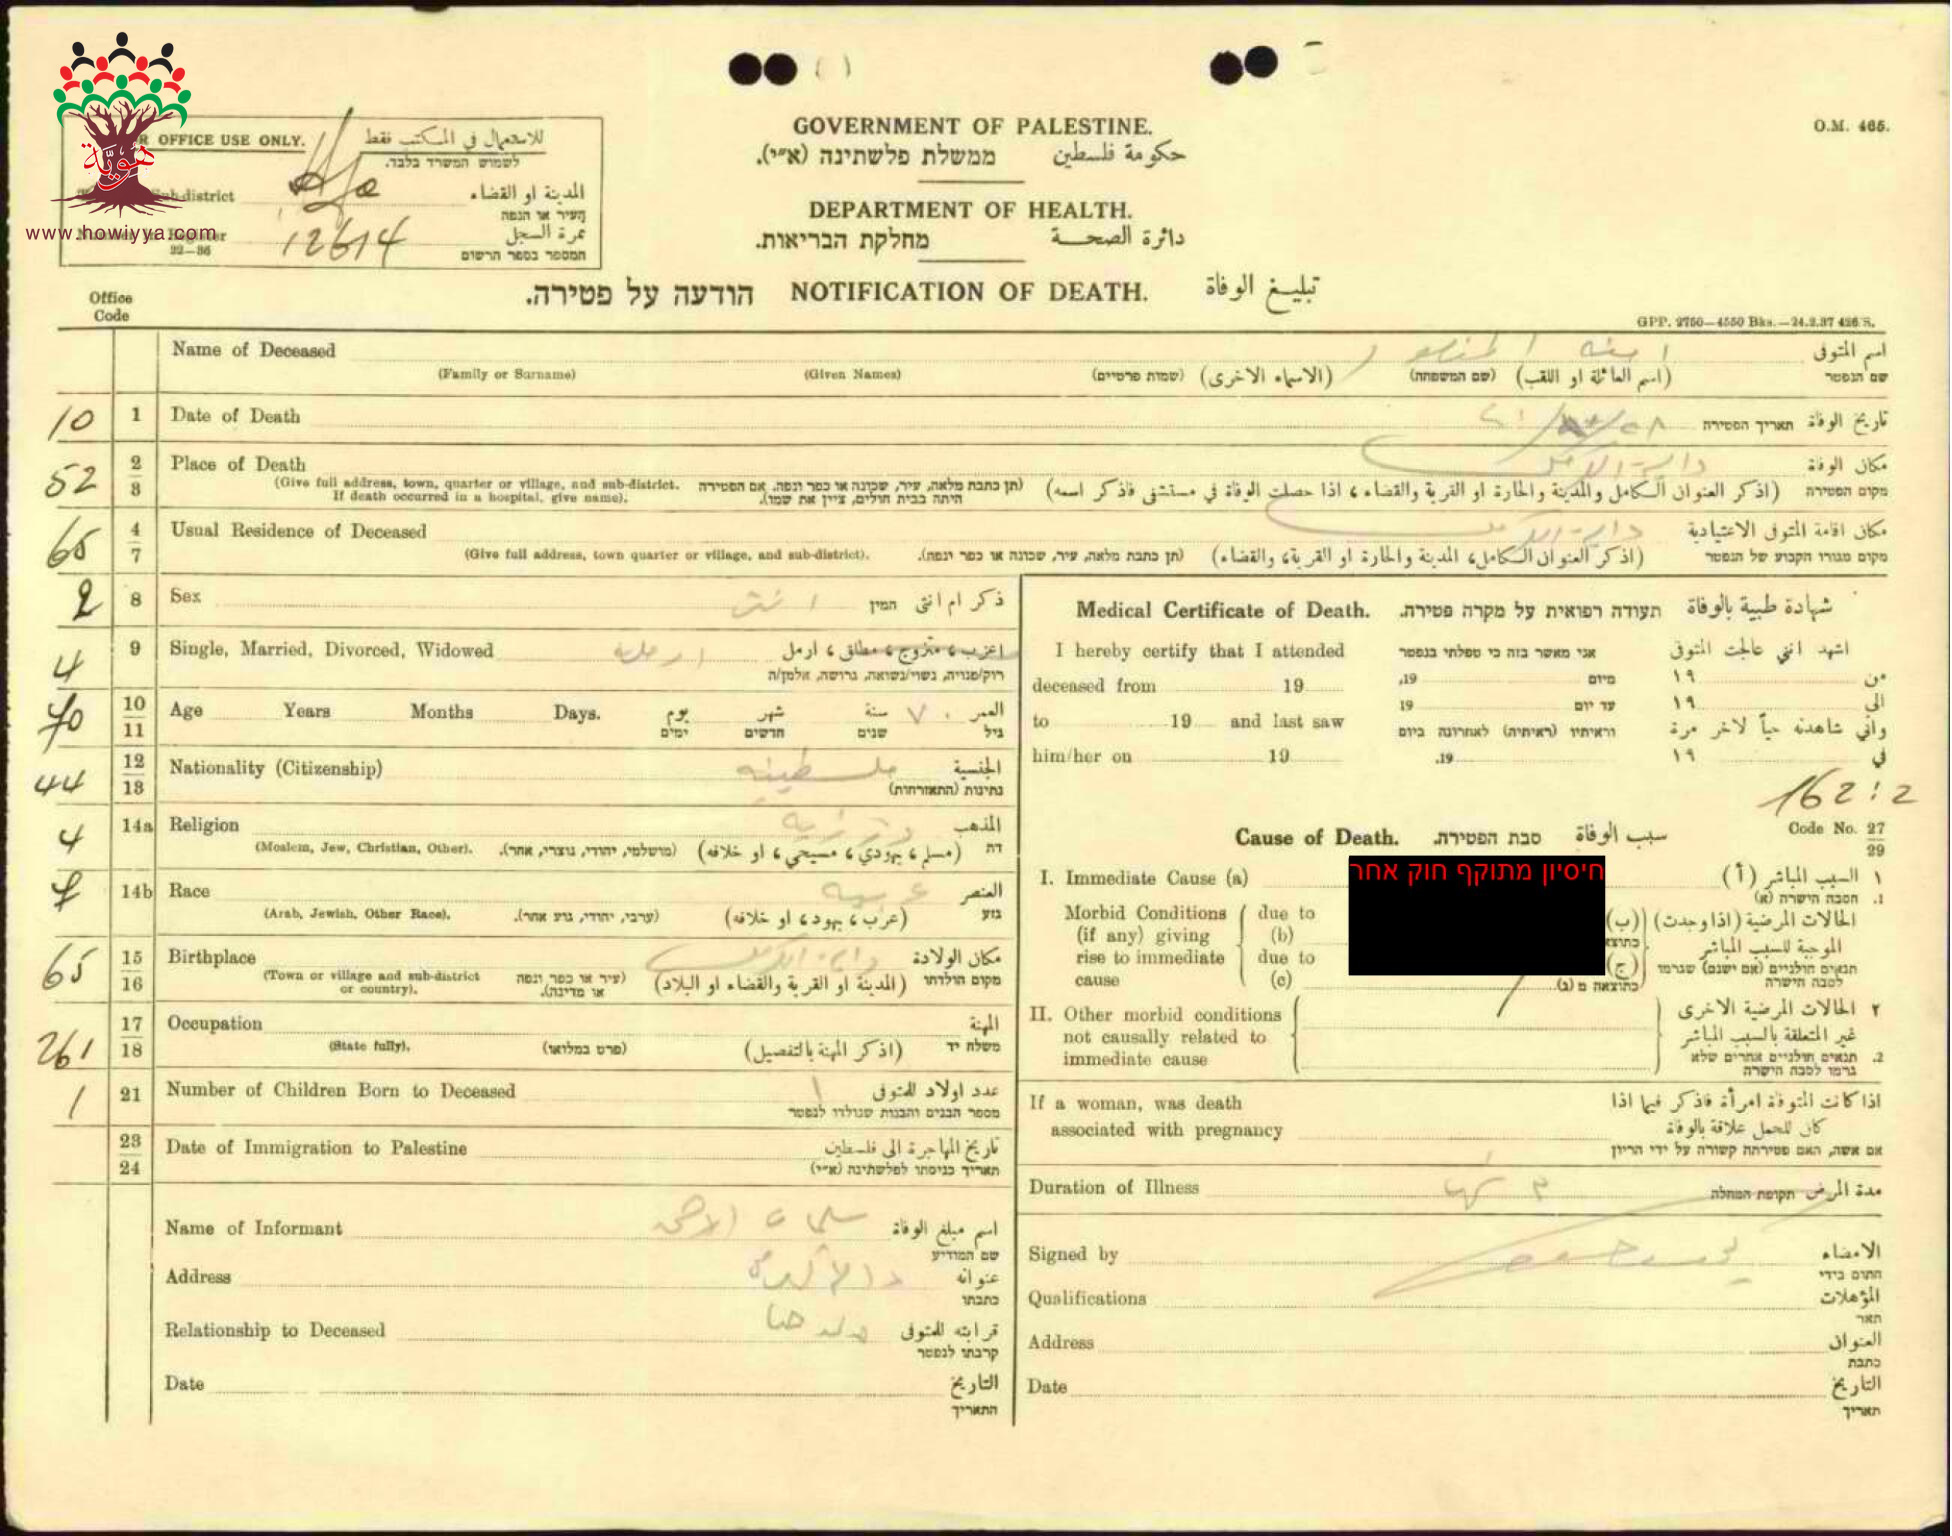 هوية
www.howiyya.com
O.M. 465.
OFFICE USE ONLY. للاستعمال في المكتب فقط
לשמוש המשרד בלבד.
Sub-district المدينة او القضاء
העיר או הנפה
12614 نمرة السجل
22—36 המספר בספר הרשום
GOVERNMENT OF PALESTINE.
ממשלת פלשתינה (א״י). حكومة فلسطين
DEPARTMENT OF HEALTH.
מחלקת הבריאות. دائرة الصحة
הודעה על פטירה. NOTIFICATION OF DEATH. تبليغ الوفاة
Office
Code
GPP. 2750—4550 Bks.—24.2.37 426/S.
Name of Deceased اسم المتوفى
(Family or Surname) (Given Names) (שמות פרטיים) (الاسماء الاخرى) (שם המשפחה) (اسم العائلة او اللقب) שם הנפטר
10 1 Date of Death תאריך הפטירה تاريخ الوفاة
52 2/3 Place of Death مكان الوفاة
(Give full address, town, quarter or village, and sub-district. (תן כתבת מלאה, עיר, שכונה או כפר ונפה. אם הפטירה (اذكر العنوان الكامل والمدينة والحارة او القرية والقضاء، اذا حصلت الوفاة في مستشفى فاذكر اسمه) מקום הפטירה
If death occurred in a hospital, give name). היתה בבית חולים, ציין את שמו).
65 4/7 Usual Residence of Deceased مكان اقامة المتوفى الاعتيادية
(Give full address, town quarter or village, and sub-district). (תן כתבת מלאה, עיר, שכונה או כפר ונפה). (اذكر العنوان الكامل، المدينة والحارة او القرية، والقضاء) מקום מגורו הקבוע של הנפטר
2 8 Sex انثى המין ذكر ام انثى
4 9 Single, Married, Divorced, Widowed ارملة اعزب، متزوج، مطلق، ارمل
רוק/פנויה, נשוי/נשואה, גרושה, אלמן/ה
70 10/11 Age Years Months Days. يوم شهر سنة ٧٠ العمر
ימים חדשים שנים גיל
44 12/13 Nationality (Citizenship) فلسطينيه الجنسية
נתינות (התאזרחות)
4 14a Religion درزيه المذهب
(Moslem, Jew, Christian, Other). (מושלמי, יהודי, נוצרי, אחר). (مسلم، يهودي، مسيحي، او خلافه) דת
7 14b Race عربيه العنصر
(Arab, Jewish, Other Race). (ערבי, יהודי, גזע אחר). (عرب، يهود، او خلافه) גזע
65 15/16 Birthplace دالية الكرمل مكان الولادة
(Town or village and sub-district (עיר או כפר ונפה (المدينة او القرية والقضاء او البلاد) מקום הולדתו
or country). או מדינה).
261 17/18 Occupation المهنة
(State fully). (פרט במלואו) (اذكر المهنة بالتفصيل) משלח יד
1 21 Number of Children Born to Deceased ١ عدد اولاد المتوفى
מספר הבנים והבנות שנולדו לנפטר
23/24 Date of Immigration to Palestine تاريخ المهاجرة الى فلسطين
תאריך כניסתו לפלשתינה (א״י)
Name of Informant اسم مبلغ الوفاة
שם המודיע
Address عنوانه
כתבתו
Relationship to Deceased قرابته للمتوفى
קרבתו לנפטר
Date التاريخ
התאריך
Medical Certificate of Death. תעודה רפואית על מקרה פטירה. شهادة طبية بالوفاة
I hereby certify that I attended אני מאשר בזה כי טפלתי בנפטר اشهد انني عالجت المتوفى
deceased from 19 מיום 19, من ١٩
to 19 and last saw עד יום 19 الى ١٩
וראיתיו (ראיתיה) לאחרונה ביום واني شاهدته حياً لاخر مرة
him/her on 19 19. في ١٩
162:2
Code No. 27/29
Cause of Death. סבת הפטירה. سبب الوفاة
I. Immediate Cause (a) חיסיון מתוקף חוק אחר ١ السبب المباشر (أ)
1. הסבה הישרה (א)
Morbid Conditions due to (ب) الحالات المرضية (اذا وجدت)
(if any) giving (b) الموجبة للسبب المباشر
rise to immediate due to (ج) תנאים חולניים (אם ישנם) שגרמו
cause (c) כתוצאה מ (ג) לסבה הישרה
II. Other morbid conditions ٢ الحالات المرضية الاخرى
not causally related to غير المتعلقة بالسبب المباشر
immediate cause 2. תנאים חולניים אחרים שלא
גרמו לסבה הישרה
If a woman, was death اذا كانت المتوفاة امرأة فاذكر فيما اذا
associated with pregnancy كان للحمل علاقة بالوفاة
אם אשה, האם פטירתה קשורה על ידי הריון
Duration of Illness תקופת המחלה مدة المرض
Signed by الامضاء
החתום בידי
Qualifications المؤهلات
תאר
Address العنوان
כתבת
Date التاريخ
תאריך